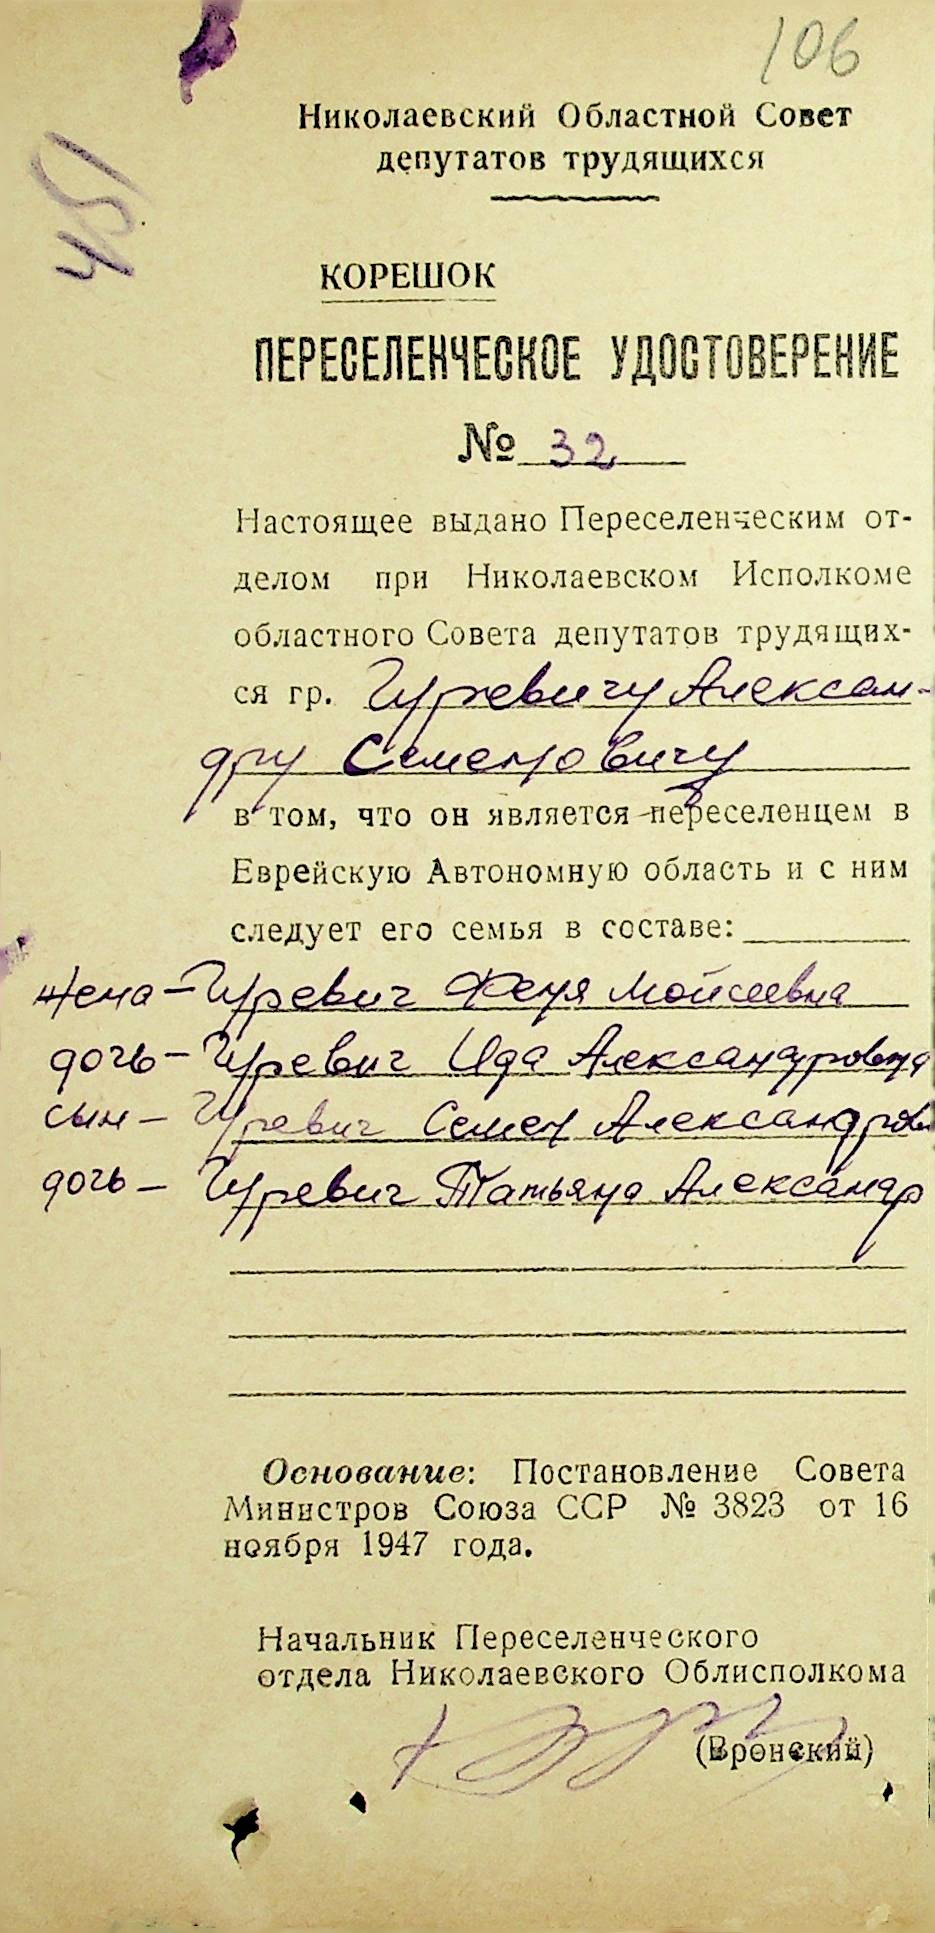 106
451
Николаевский Областной Совет
депутатов трудящихся
КОРЕШОК
ПЕРЕСЕЛЕНЧЕСКОЕ УДОСТОВЕРЕНИЕ
№ 32
Настоящее выдано Переселенческим от-
делом при Николаевском Исполкоме
областного Совета депутатов трудящих-
ся гр. Гуревичу Алексан-
дру Семеновичу
в том, что он является переселенцем в
Еврейскую Автономную область и с ним
следует его семья в составе:
жена - Гуревич Феня Мойсеевна
дочь - Гуревич Ида Александровна
сын - Гуревич Семен Александрови
дочь - Гуревич Татьяна Александр
Основание: Постановление Совета
Министров Союза ССР № 3823 от 16
ноября 1947 года.
Начальник Переселенческого
отдела Николаевского Облисполкома
(Вронский)